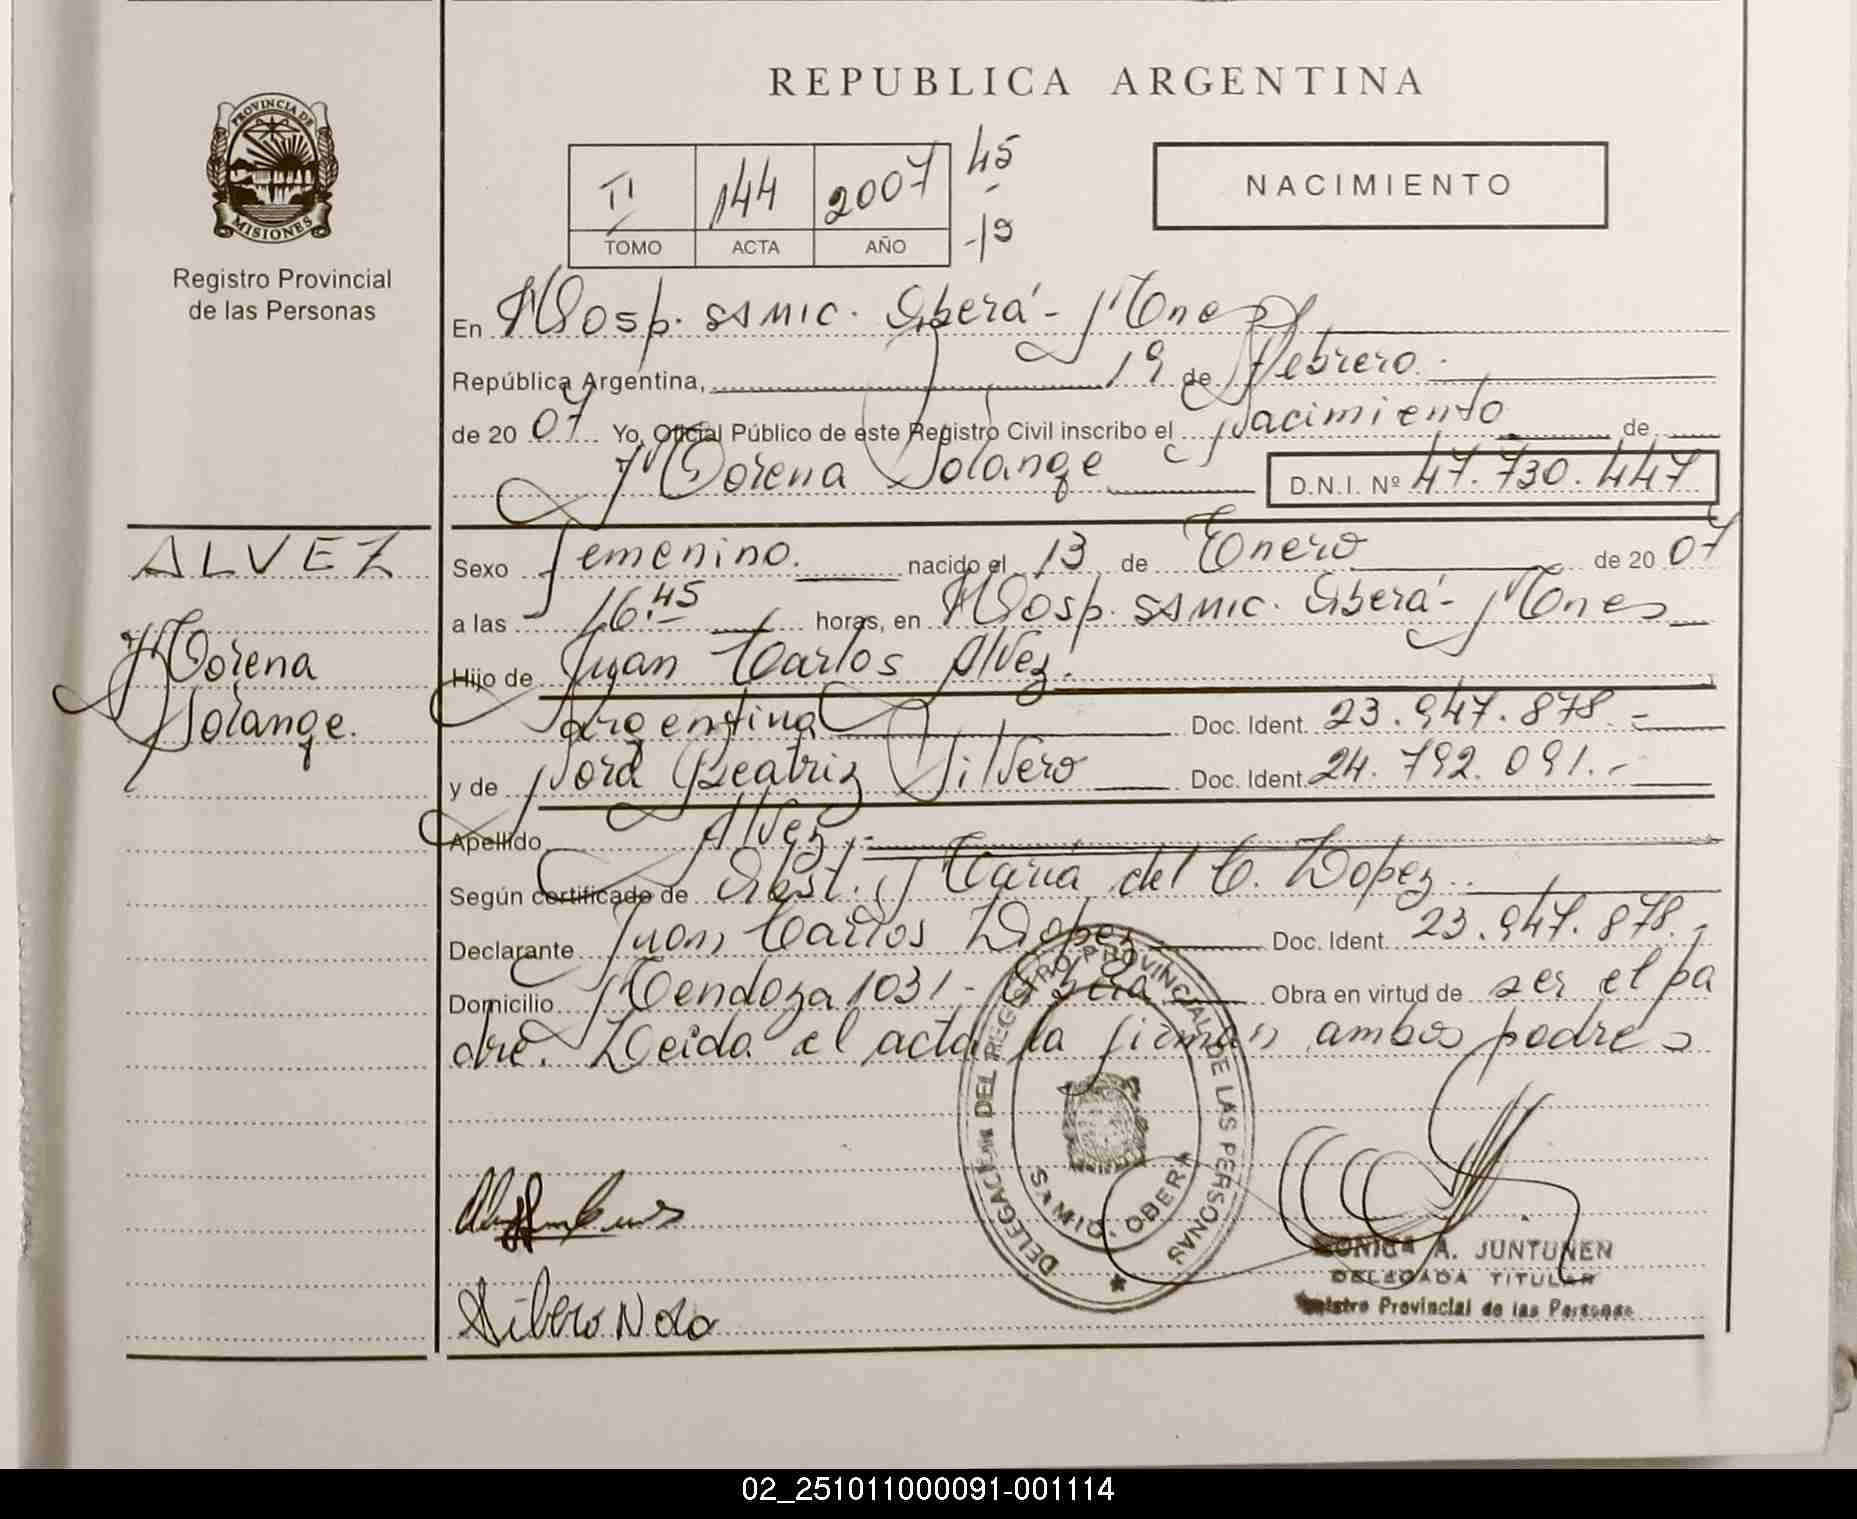 REPUBLICA ARGENTINA
PROVINCIA DE
MISIONES
Registro Provincial
de las Personas
TI 144 2007 45
TOMO ACTA AÑO -19
NACIMIENTO
En Hosp. SAMIC. Oberá - Mnes
República Argentina, 19 de Febrero.
de 20 07 Yo, Oficial Público de este Registro Civil inscribo el Nacimiento de
Morena Solange D.N.I. Nº 47.730.447
ALVEZ
Morena
Solange.
Sexo femenino. nacido el 13 de Enero de 20 07
a las 16.45 horas, en Hosp. SAMIC. Oberá - Mones
Hijo de Juan Carlos Alvez.
argentina Doc. Ident. 23.947.878.-
y de Nora Beatriz Silvero Doc. Ident. 24.792.091.-
Apellido Alvez.-
Según certificado de Obst. María del C. Lopez.
Declarante Juan Carlos Lopez Doc. Ident. 23.947.878.-
Domicilio Mendoza 1031 - Oberá Obra en virtud de ser el pa
dre. Leida el acta la firman ambos padres
DELEGACION DEL REGISTRO PROVINCIAL DE LAS PERSONAS
SAMIC. OBERA
MONICA A. JUNTUNEN
DELEGADA TITULAR
Registro Provincial de las Personas
Silvero Nora
02_251011000091-001114